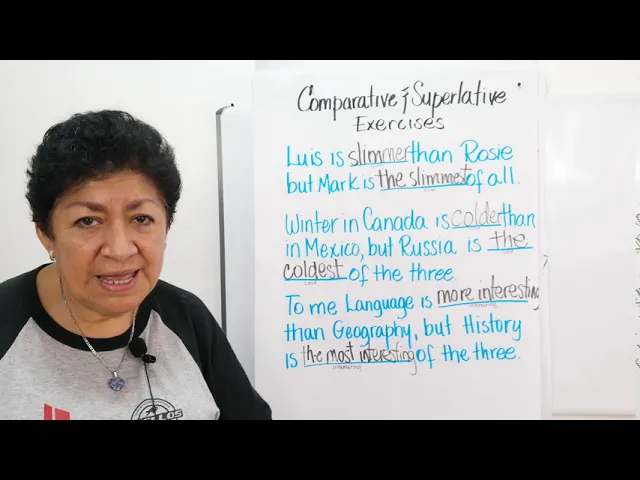 Comparative & Superlative
Exercises
Luis is slimmer than Rosie
but Mark is the slimmest of all.
Winter in Canada is colder than
in Mexico, but Russia is the
coldest of the three.
To me Language is more interesting
than Geography, but History
is the most interesting of the three.